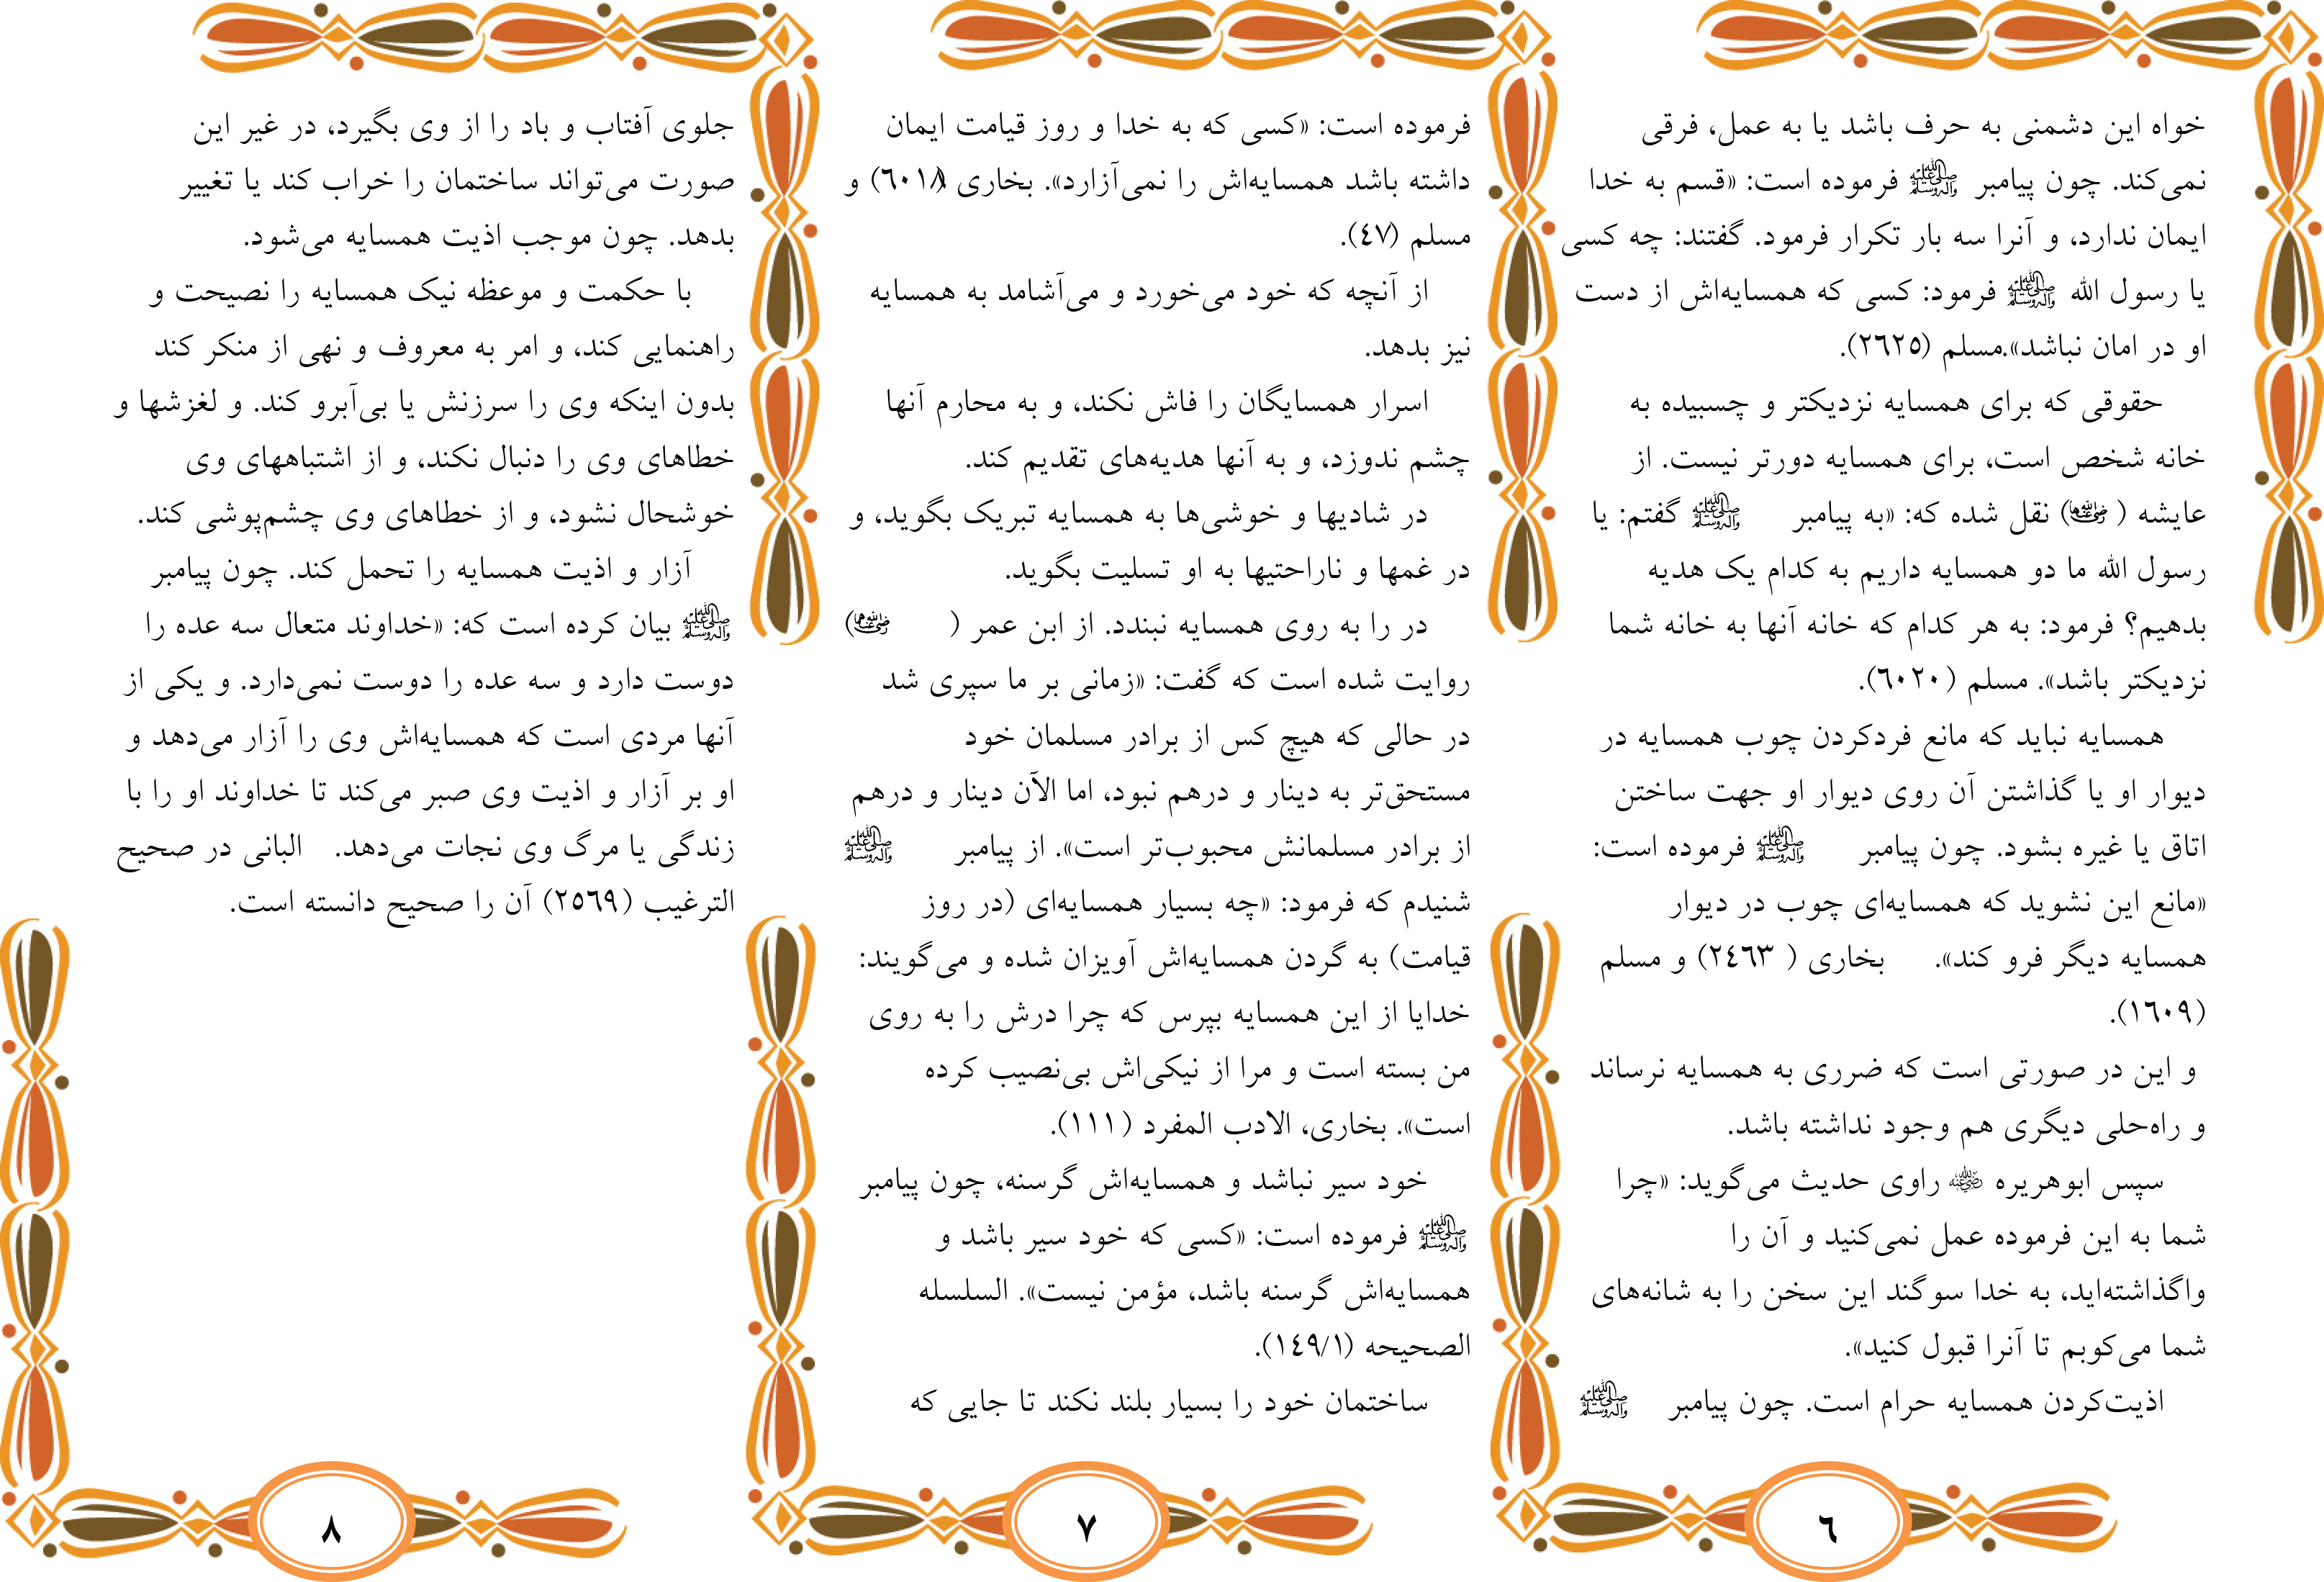 خواه این دشمنی به حرف باشد یا به عمل، فرقی
نمی‌کند. چون پیامبر ﷺ فرموده است: «قسم به خدا
ایمان ندارد، و آنرا سه بار تکرار فرمود. گفتند: چه کسی
یا رسول الله ﷺ فرمود: کسی که همسایه‌اش از دست
او در امان نباشد».مسلم (٢٦٢٥).
حقوقی که برای همسایه نزدیکتر و چسبیده به
خانه شخص است، برای همسایه دورتر نیست. از
عایشه (رضی الله عنها) نقل شده که: «به پیامبر ﷺ گفتم: یا
رسول الله ما دو همسایه داریم به کدام یک هدیه
بدهیم؟ فرمود: به هر کدام که خانه آنها به خانه شما
نزدیکتر باشد». مسلم (٦٠٢٠).
همسایه نباید که مانع فردکردن چوب همسایه در
دیوار او یا گذاشتن آن روی دیوار او جهت ساختن
اتاق یا غیره بشود. چون پیامبر ﷺ فرموده است:
«مانع این نشوید که همسایه‌ای چوب در دیوار
همسایه دیگر فرو کند». بخاری (٢٤٦٣) و مسلم
(١٦٠٩).
و این در صورتی است که ضرری به همسایه نرساند
و راه‌حلی دیگری هم وجود نداشته باشد.
سپس ابوهریره رضی الله عنه راوی حدیث می‌گوید: «چرا
شما به این فرموده عمل نمی‌کنید و آن را
واگذاشته‌اید، به خدا سوگند این سخن را به شانه‌های
شما می‌کوبم تا آنرا قبول کنید».
اذیت‌کردن همسایه حرام است. چون پیامبر ﷺ
٦
فرموده است: «کسی که به خدا و روز قیامت ایمان
داشته باشد همسایه‌اش را نمی‌آزارد». بخاری (٦٠١٨) و
مسلم (٤٧).
از آنچه که خود می‌خورد و می‌آشامد به همسایه
نیز بدهد.
اسرار همسایگان را فاش نکند، و به محارم آنها
چشم ندوزد، و به آنها هدیه‌های تقدیم کند.
در شادیها و خوشی‌ها به همسایه تبریک بگوید، و
در غمها و ناراحتیها به او تسلیت بگوید.
در را به روی همسایه نبندد. از ابن عمر (رضی الله عنهما)
روایت شده است که گفت: «زمانی بر ما سپری شد
در حالی که هیچ کس از برادر مسلمان خود
مستحق‌تر به دینار و درهم نبود، اما الآن دینار و درهم
از برادر مسلمانش محبوب‌تر است». از پیامبر ﷺ
شنیدم که فرمود: «چه بسیار همسایه‌ای (در روز
قیامت) به گردن همسایه‌اش آویزان شده و می‌گویند:
خدایا از این همسایه بپرس که چرا درش را به روی
من بسته است و مرا از نیکی‌اش بی‌نصیب کرده
است». بخاری، الادب المفرد (١١١).
خود سیر نباشد و همسایه‌اش گرسنه، چون پیامبر
ﷺ فرموده است: «کسی که خود سیر باشد و
همسایه‌اش گرسنه باشد، مؤمن نیست». السلسله
الصحیحه (١٤٩/١).
ساختمان خود را بسیار بلند نکند تا جایی که
٧
جلوی آفتاب و باد را از وی بگیرد، در غیر این
صورت می‌تواند ساختمان را خراب کند یا تغییر
بدهد. چون موجب اذیت همسایه می‌شود.
با حکمت و موعظه نیک همسایه را نصیحت و
راهنمایی کند، و امر به معروف و نهی از منکر کند
بدون اینکه وی را سرزنش یا بی‌آبرو کند. و لغزشها و
خطاهای وی را دنبال نکند، و از اشتباههای وی
خوشحال نشود، و از خطاهای وی چشم‌پوشی کند.
آزار و اذیت همسایه را تحمل کند. چون پیامبر
ﷺ بیان کرده است که: «خداوند متعال سه عده را
دوست دارد و سه عده را دوست نمی‌دارد. و یکی از
آنها مردی است که همسایه‌اش وی را آزار می‌دهد و
او بر آزار و اذیت وی صبر می‌کند تا خداوند او را با
زندگی یا مرگ وی نجات می‌دهد. البانی در صحیح
الترغیب (٢٥٦٩) آن را صحیح دانسته است.
٨